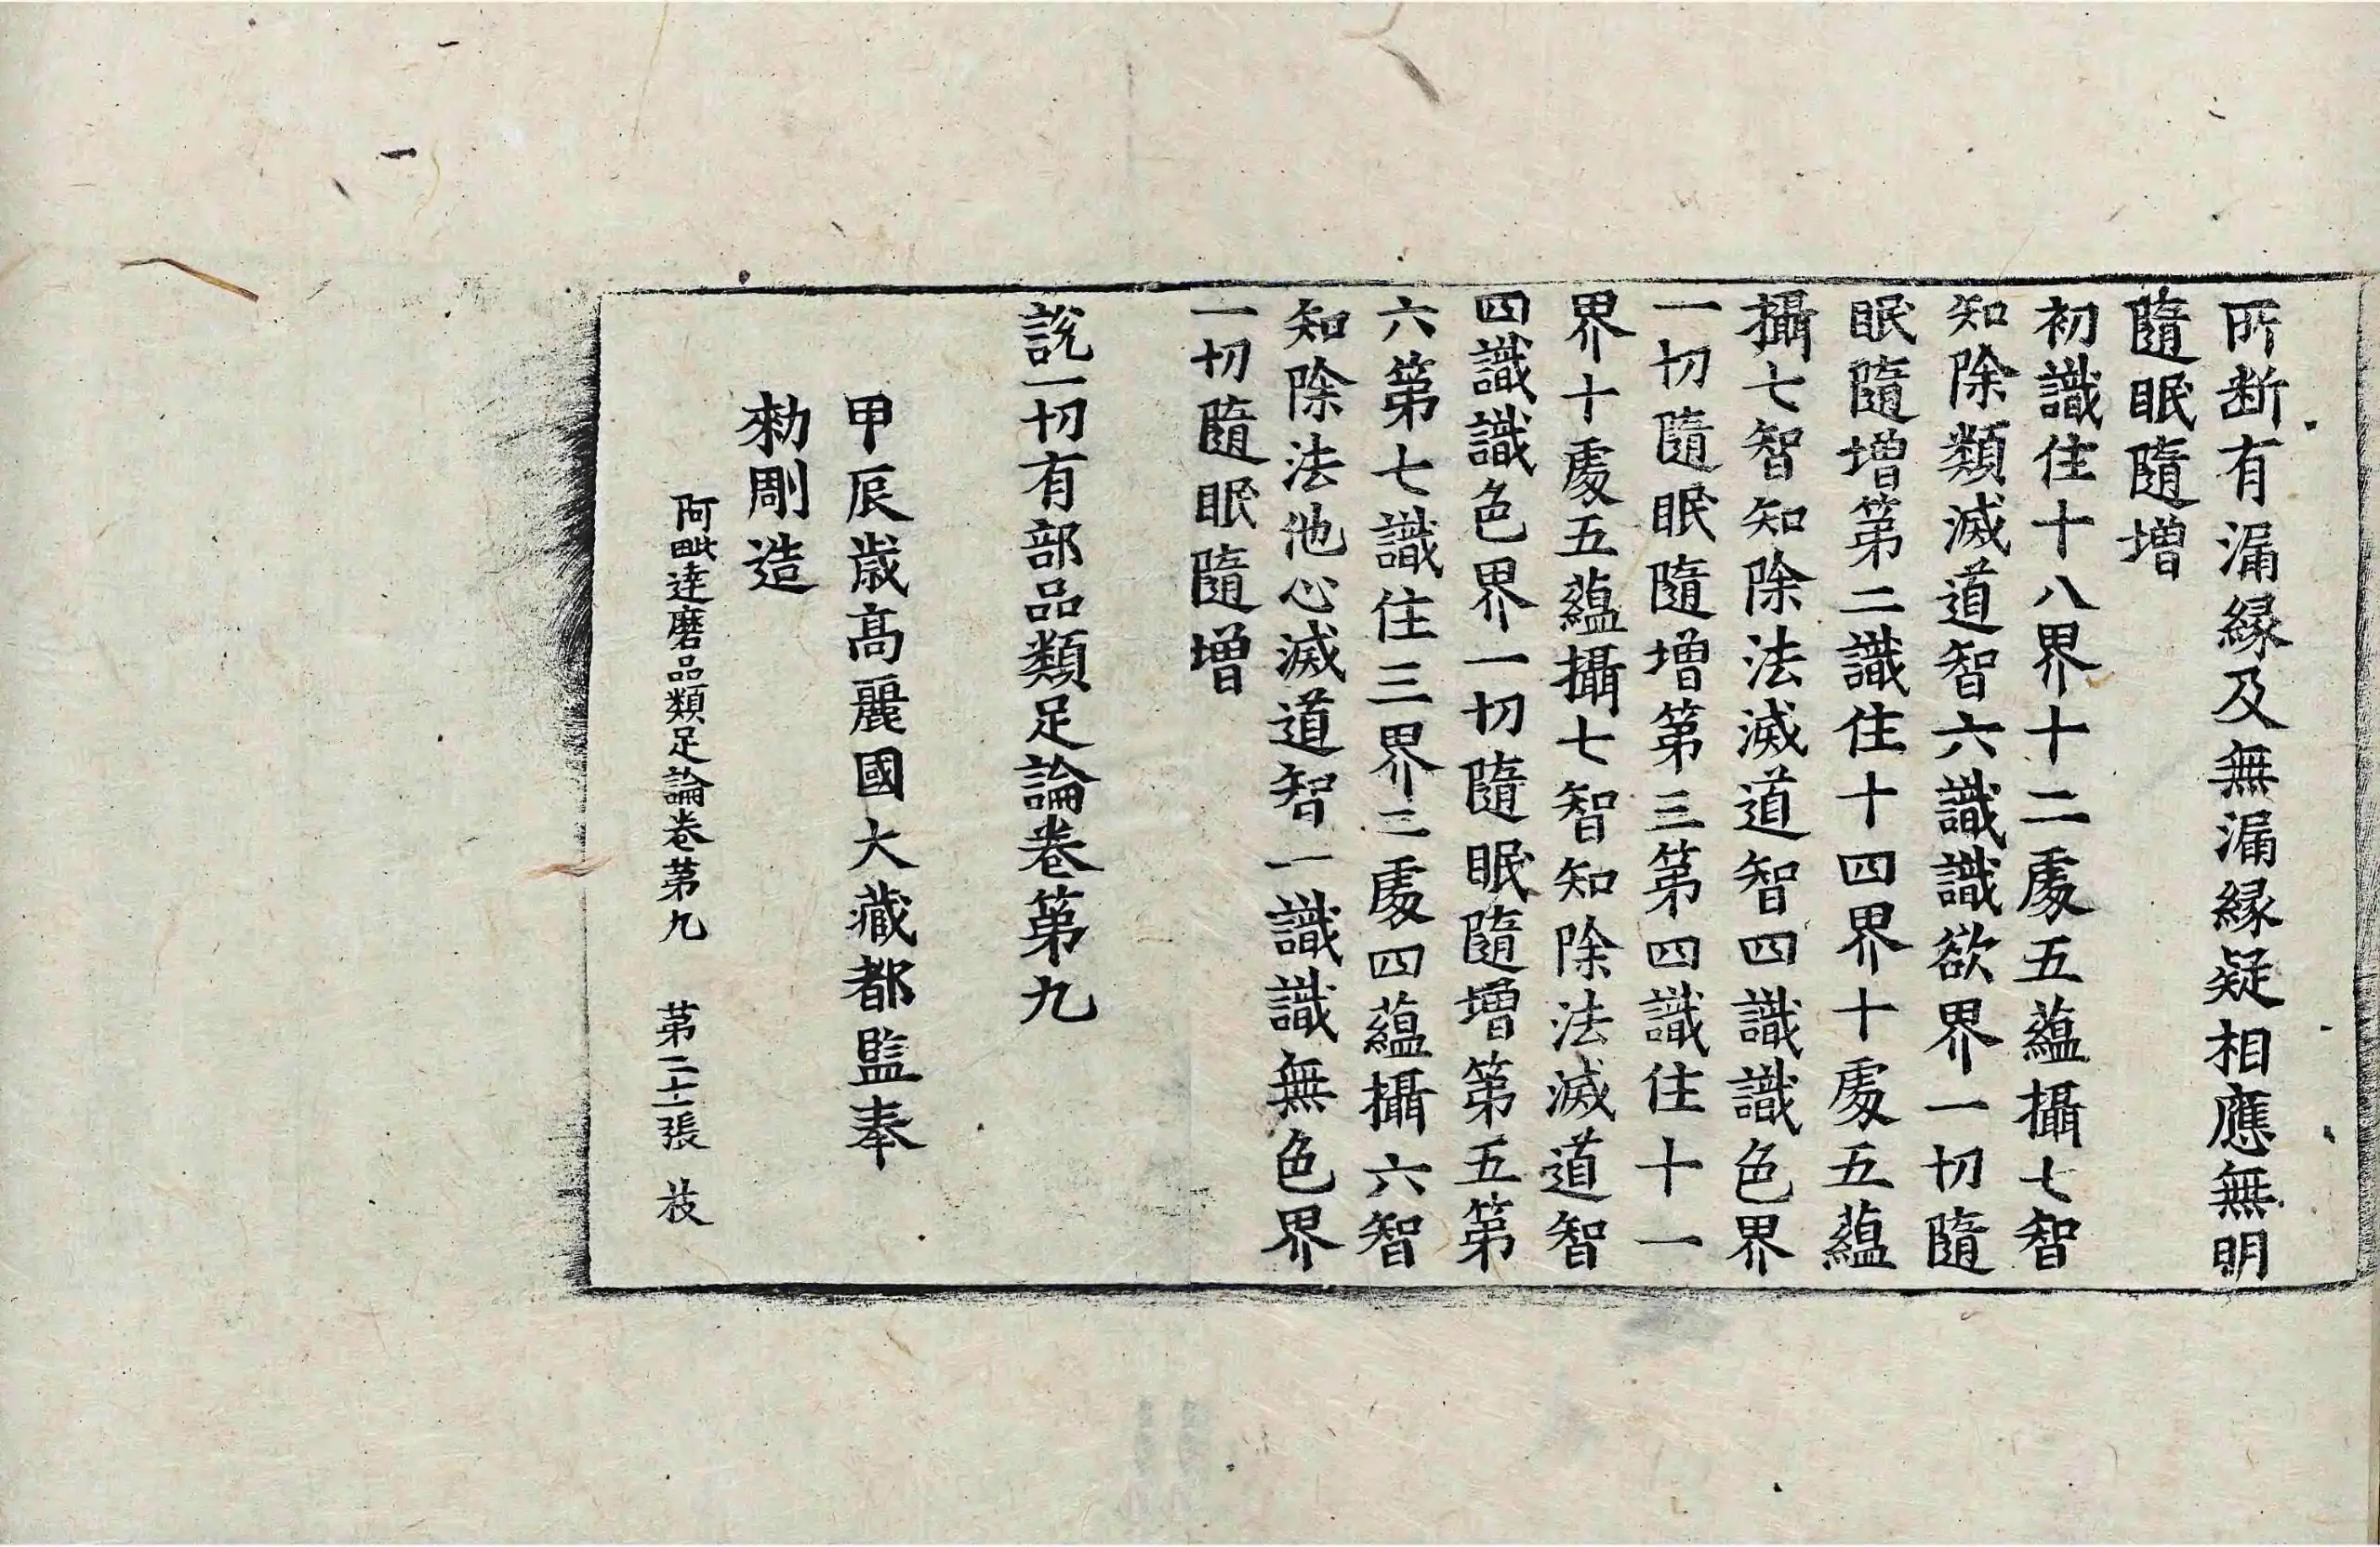 所断有漏縁及無漏縁疑相應無明
隨眠隨增
初識住十八界十二處五蘊攝七智
知除類滅道智六識識欲界一切隨
眠隨增第二識住十四界十處五蘊
攝七智知除法滅道智四識識色界
一切隨眠隨增第三第四識住十一
界十處五蘊攝七智知除法滅道智
四識識色界一切隨眠隨增第五第
六第七識住三界二處四蘊攝六智
知除法他心滅道智一識識無色界
一切隨眠隨增
說一切有部品類足論卷第九
甲辰歲高麗國大藏都監奉
勑彫造
阿毗達磨品類足論卷第九 第二十一張 茙